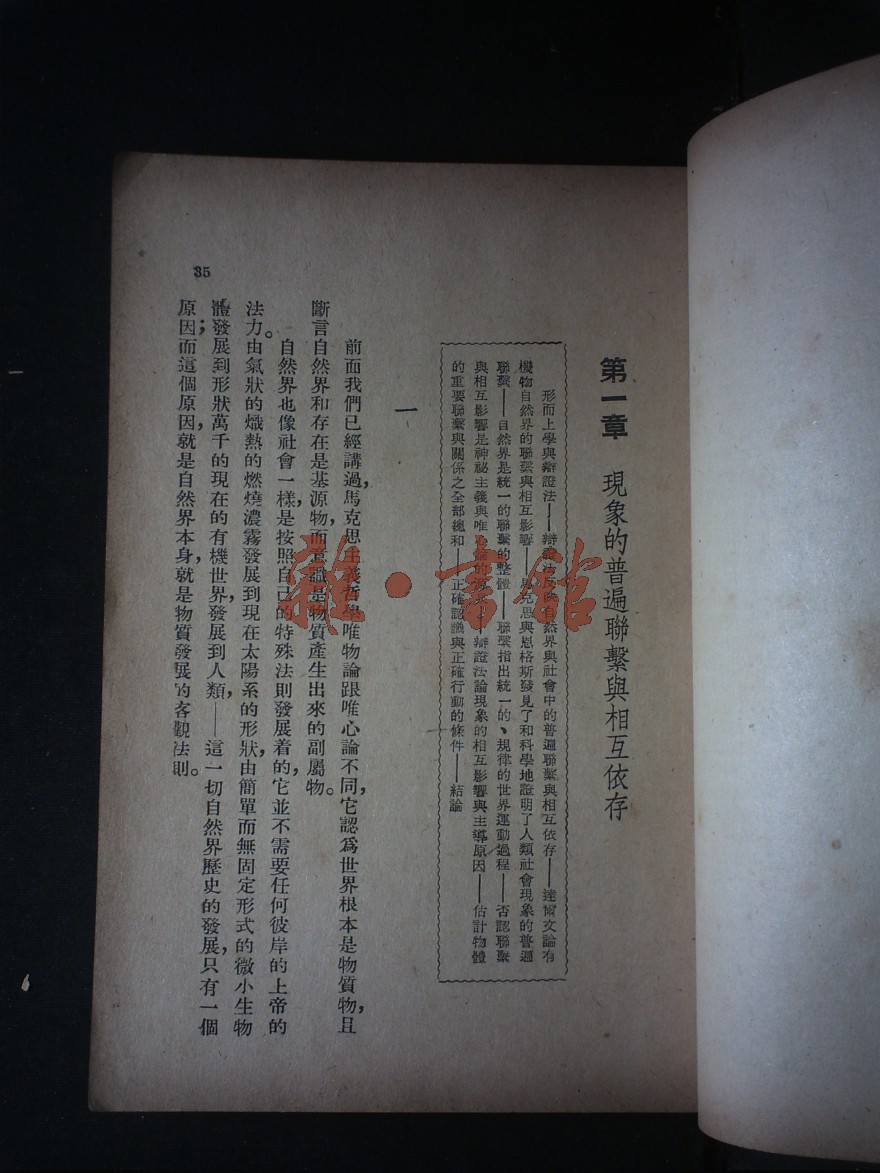 第一章　現象的普遍聯繫與相互依存
形而上學與辯證法——辯證法反映自然界與社會中的普遍聯繫與相互依存——達爾文論有
機物自然界的聯繫與相互影響——馬克思與恩格斯發見了和科學地證明了人類社會現象的普遍
聯繫——自然界是統一的聯繫的整體——聯繫指出統一的、規律的世界運動過程——否認聯繫
與相互影響是神祕主義與唯心論的——辯證法論現象的相互影響與主導原因——估計物體
的重要聯繫與關係之全部總和——正確認識與正確行動的條件——結論
一
前面我們已經講過，馬克思主義哲學唯物論跟唯心論不同，它認爲世界根本是物質物，且
斷言自然界和存在是基源物，而意識是物質產生出來的副屬物。
自然界也像社會一樣，是按照自己的特殊法則發展着的，它並不需要任何彼岸的上帝的
法力。由氣狀的熾熱的燃燒濃霧發展到現在太陽系的形狀，由簡單而無固定形式的微小生物
體發展到形狀萬千的現在的有機世界，發展到人類，——這一切自然界歷史的發展，只有一個
原因；而這個原因，就是自然界本身，就是物質發展的客觀法則。
35
雜·書館